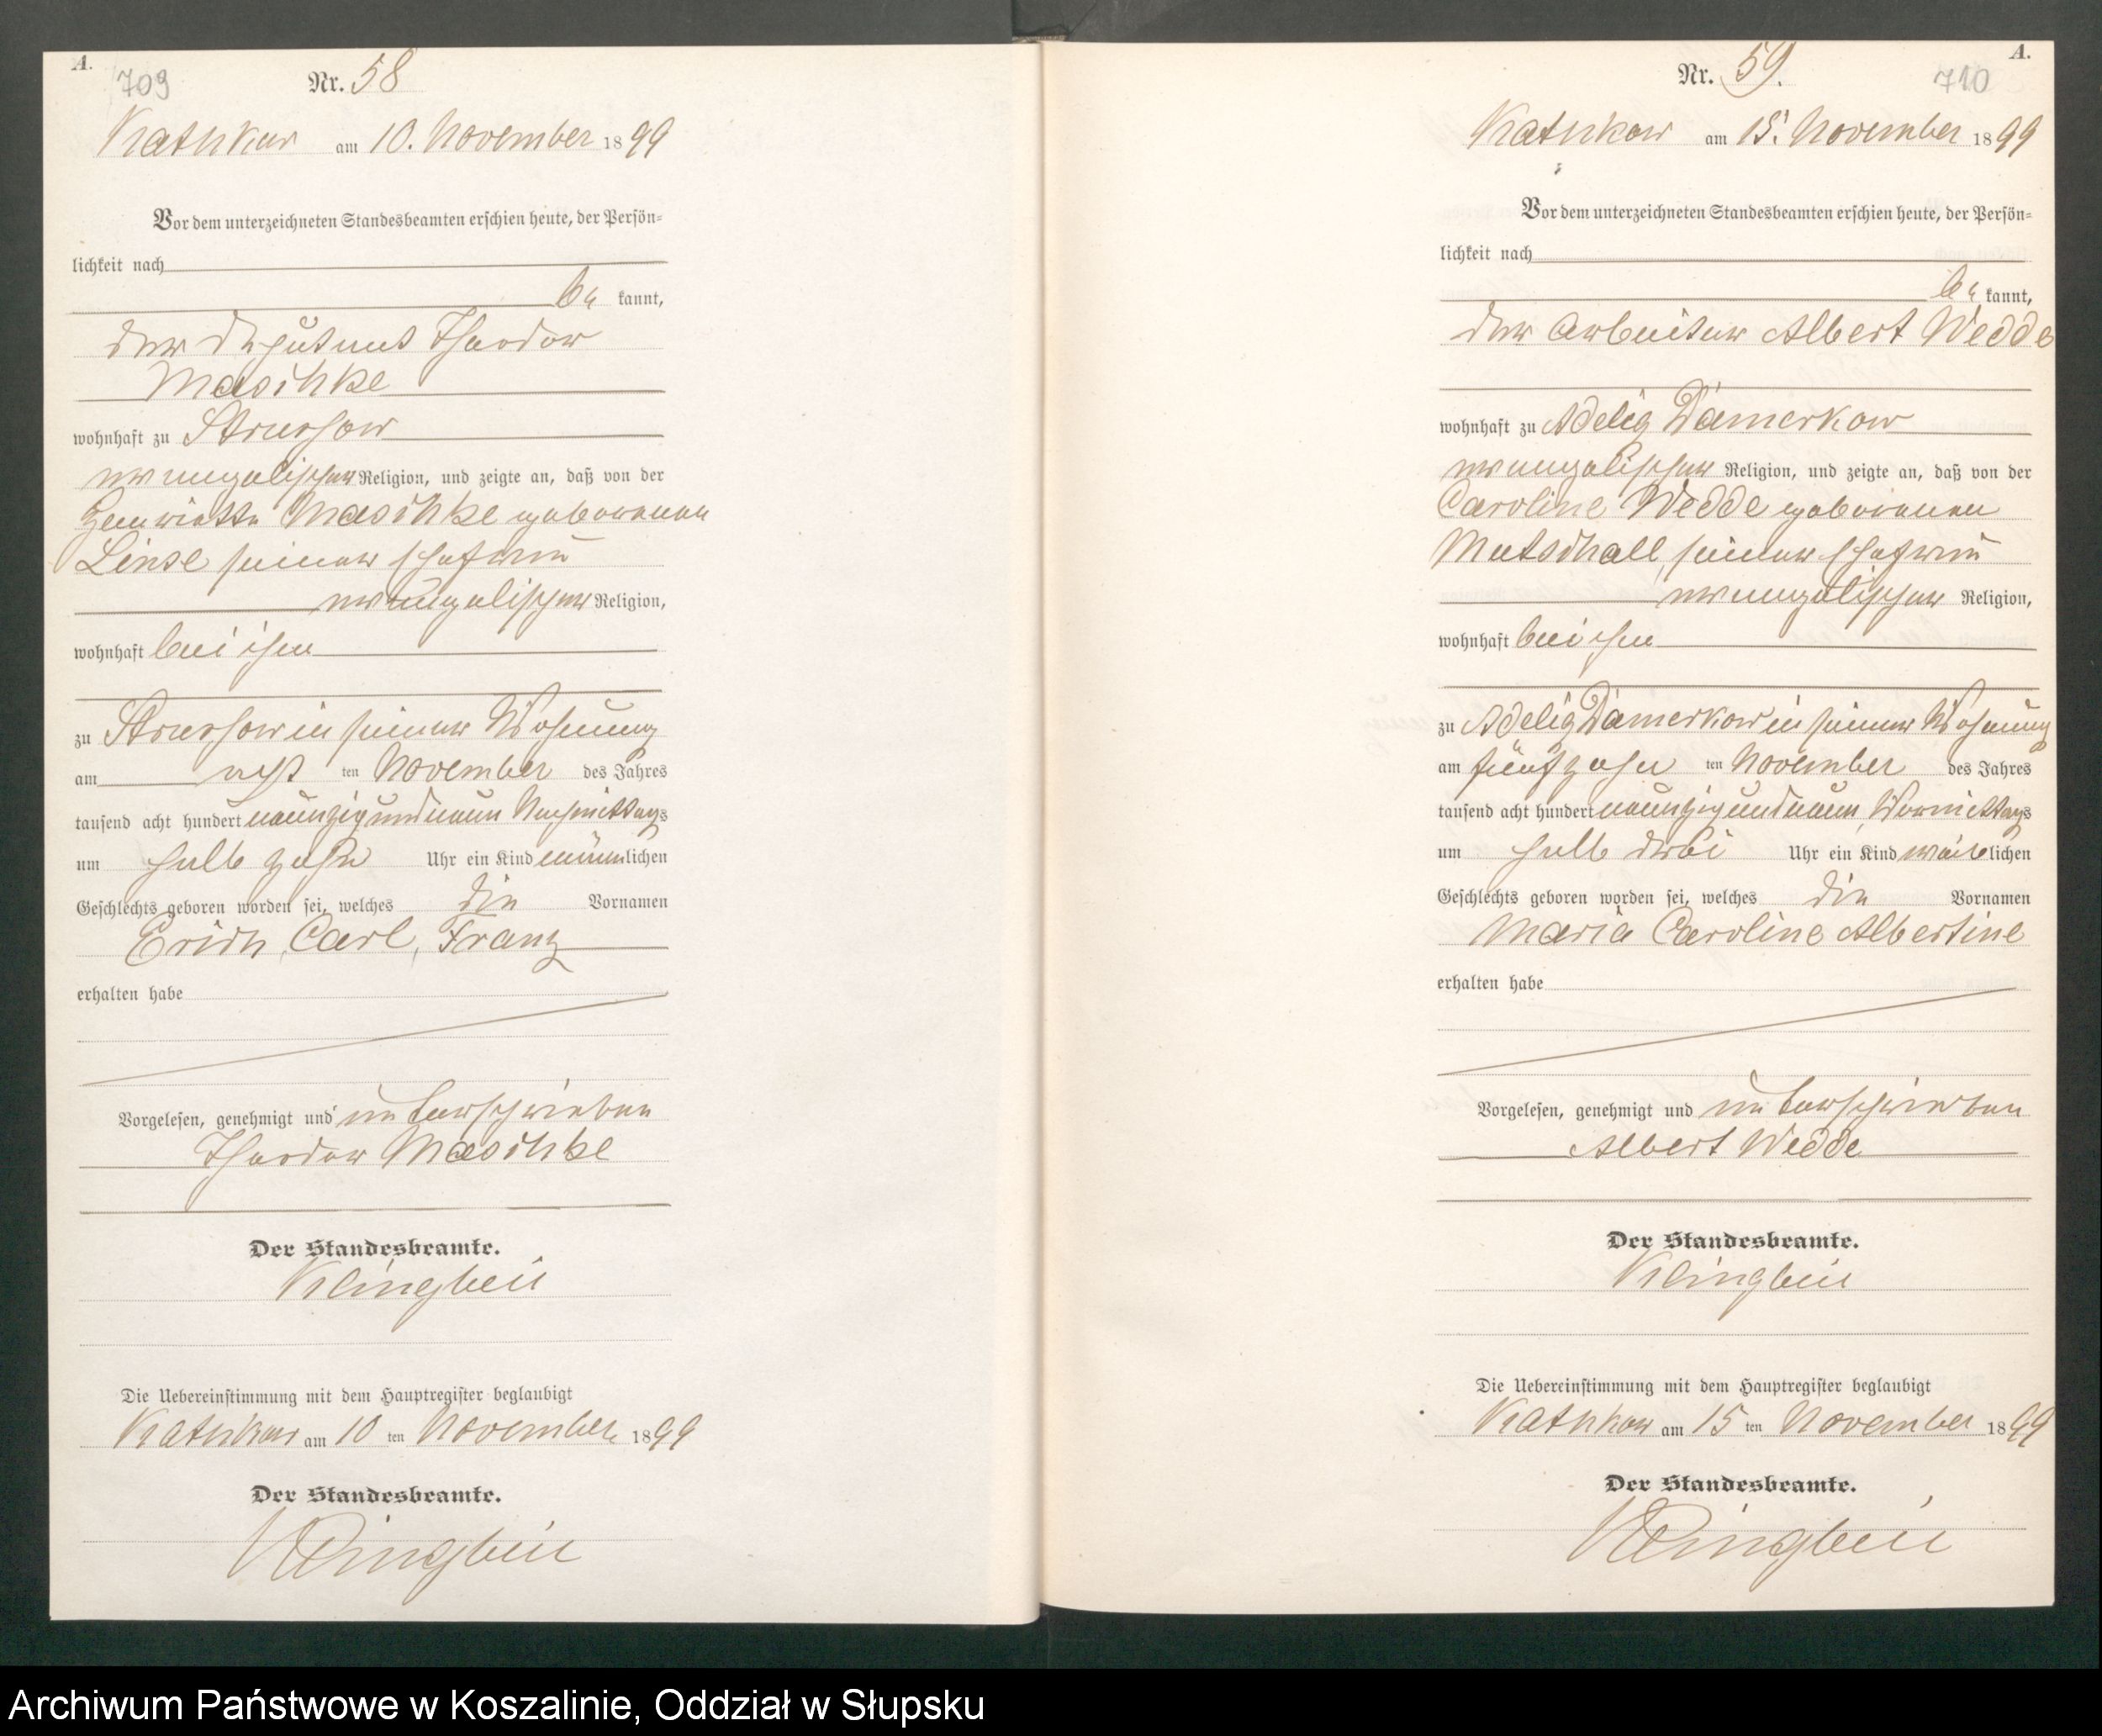 A.
709
Nr. 58
Kathkow am 10. November 1899
Vor dem unterzeichneten Standesbeamten erschien heute, der Persön=
lichkeit nach
be kannt,
der Theodor
Maschke
wohnhaft zu Strussow
evangelischer Religion, und zeigte an, daß von der
Henriette Maschke geborenen
Linse seiner Ehefrau
evangelischer Religion,
wohnhaft bei ihm
zu Strussow in seiner Wohnung
am acht ten November des Jahres
tausend acht hundert neunzig und neun Nachmittags
um halb zehn Uhr ein Kind männlichen
Geschlechts geboren worden sei, welches die Vornamen
Erich, Carl, Franz
erhalten habe
Vorgelesen, genehmigt und unterschrieben
Theodor Maschke
Der Standesbeamte.
Klingbeil
Die Uebereinstimmung mit dem Hauptregister beglaubigt
Kathkow am 10 ten November 1899
Der Standesbeamte.
Klingbeil
A.
Nr. 59.
710
Kathkow am 15. November 1899
Vor dem unterzeichneten Standesbeamten erschien heute, der Persön=
lichkeit nach
be kannt,
der Arbeiter Albert Wedde
wohnhaft zu Adelig Damerkow
evangelischer Religion, und zeigte an, daß von der
Caroline Wedde geborenen
Mutschall, seiner Ehefrau
evangelischer Religion,
wohnhaft bei ihm
zu Adelig Damerkow in seiner Wohnung
am fünfzehn ten November des Jahres
tausend acht hundert neunzig und neun, Vormittags
um halb drei Uhr ein Kind weiblichen
Geschlechts geboren worden sei, welches die Vornamen
Maria Caroline Albertine
erhalten habe
Vorgelesen, genehmigt und unterschrieben
Albert Wedde
Der Standesbeamte.
Klingbeil
Die Uebereinstimmung mit dem Hauptregister beglaubigt
Kathkow am 15 ten November 1899
Der Standesbeamte.
Klingbeil
Archiwum Państwowe w Koszalinie, Oddział w Słupsku